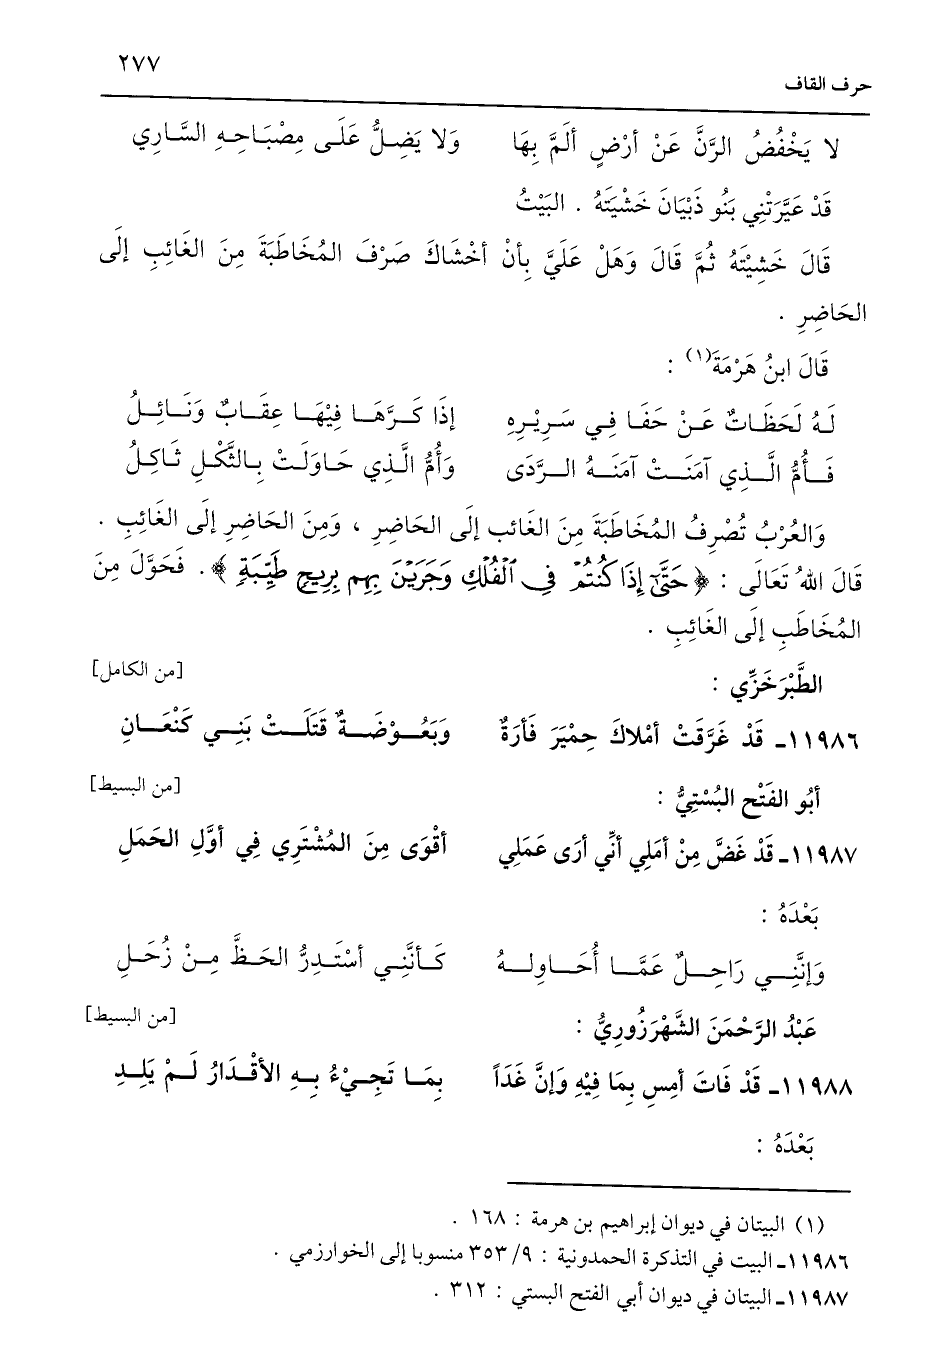 ٢٧٧
حرف القاف
لا يَخْفُضُ الرَّنَّ عَنْ أرْضٍ ألَمَّ بِهَا وَلا يَضِلُّ عَلَى مِصْبَاحِهِ السَّارِي
قَدْ عَيَّرَتْنِي بَنُو ذَبْيَانَ خَشْيَتَهُ . البَيْتُ
قَالَ خَشِيْتَهُ ثُمَّ قَالَ وَهَلْ عَلَيَّ بِأنْ أخْشَاكَ صَرْفَ المُخَاطَبَةَ مِنَ الغَائِبِ إلَى
الحَاضِرِ .
قَالَ ابنُ هَرْمَةَ(١) :
لَهُ لَحَظَاتٌ عَنْ حَفَا فِي سَرِيْرِهِ إذَا كَرَّهَا فِيْهَا عِقَابٌ وَنَائِلُ
فَأُمُّ الَّذِي آمَنَتْ آمَنَهُ الرَّدَى وَأمُّ الَّذِي حَاوَلَتْ بِالثَّكْلِ ثَاكِلُ
وَالعُرْبُ تُصْرِفُ المُخَاطَبَةَ مِنَ الغَائب إلَى الحَاضِرِ ، وَمِنَ الحَاضِرِ إلَى الغَائِبِ .
قَالَ اللهُ تَعَالَى : ﴿ حَتَّىٰٓ إِذَا كُنتُمْ فِى ٱلْفُلْكِ وَجَرَيْنَ بِهِم بِرِيحٍ طَيِّبَةٍ ﴾ . فَحَوَّلَ مِنَ
المُخَاطَبِ إلَى الغَائِبِ .
الطَّبْرَخَزِّي : [من الكامل]
١١٩٨٦ـ قَدْ غَرَّقَتْ أمْلاكَ حِمْيَرَ فَأرَةٌ وَبَعُوْضَةٌ قَتَلَتْ بَنِي كَنْعَانِ
أبُو الفَتْح البُسْتِيُّ : [من البسيط]
١١٩٨٧ـ قَدْ غَضَّ مِنْ أمَلِي أنِّي أرَى عَمَلِي أقْوَى مِنَ المُشْتَرِي فِي أوَّلِ الحَمَلِ
بَعْدَهُ :
وَإنَّنِي رَاحِلٌ عَمَّا أُحَاولهُ كَأنَّنِي أسْتَدِرُّ الحَظَّ مِنْ زُحَلِ
عَبْدُ الرَّحْمَنَ الشَّهْرَزُورِيُّ : [من البسيط]
١١٩٨٨ـ قَدْ فَاتَ أمسِ بِمَا فِيْهِ وَإنَّ غَدَاً بِمَا تَجِيْءُ بِهِ الأقْدَارُ لَمْ يَلِدِ
بَعْدَهُ :
(١) البيتان في ديوان إبراهيم بن هرمة : ١٦٨ .
١١٩٨٦ـ البيت في التذكرة الحمدونية : ٩/ ٣٥٣ منسوبا إلى الخوارزمي .
١١٩٨٧ـ البيتان في ديوان أبي الفتح البستي : ٣١٢ .